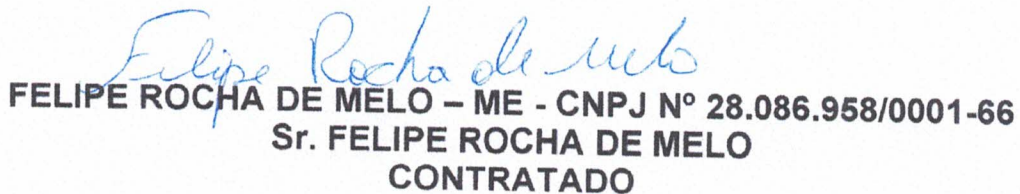 Felipe Rocha de Melo
FELIPE ROCHA DE MELO – ME - CNPJ Nº 28.086.958/0001-66
Sr. FELIPE ROCHA DE MELO
CONTRATADO